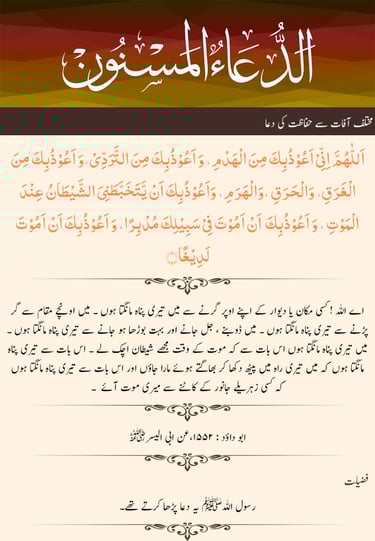 الدُّعَاءُ المَسْنُون
مختلف آفات سے حفاظت کی دعا
اَللّٰهُمَّ اِنِّیْ اَعُوْذُبِکَ مِنَ الْهَدْمِ، وَاَعُوْذُبِکَ مِنَ التَّرَدِّیْ، وَاَعُوْذُبِکَ مِنَ
الْغَرَقِ، وَالْحَرَقِ، وَالْهَرَمِ، وَاَعُوْذُبِکَ اَنْ یَّتَخَبَّطَنِیَ الشَّیْطَانُ عِنْدَ
الْمَوْتِ، وَاَعُوْذُبِکَ اَنْ اَمُوْتَ فِیْ سَبِیْلِکَ مُدْبِرًا، وَاَعُوْذُبِکَ اَنْ اَمُوْتَ
لَدِیْغًا
اے اللہ ! کسی مکان یا دیوار کے اپنے اوپر گرنے سے میں تیری پناہ مانگتا ہوں ۔ میں اونچے مقام سے گر
پڑنے سے تیری پناہ مانگتا ہوں ۔ میں ڈوبنے ، جل جانے اور بہت بوڑھا ہو جانے سے تیری پناہ مانگتا ہوں ۔
میں تیری پناہ مانگتا ہوں اس بات سے کہ موت کے وقت مجھے شیطان اچک لے ۔ اس بات سے تیری پناہ
مانگتا ہوں کہ میں تیری راہ میں پیٹھ دکھا کر بھاگتے ہوئے مارا جاؤں اور اس بات سے تیری پناہ مانگتا ہوں
کہ کسی زہریلے جانور کے کاٹنے سے میری موت آئے ۔
ابو داؤد : ۱۵۵۲، عن ابی الیسر رضی اللہ عنہ
فضیلت
رسول اللہ ﷺ یہ دعا پڑھا کرتے تھے۔